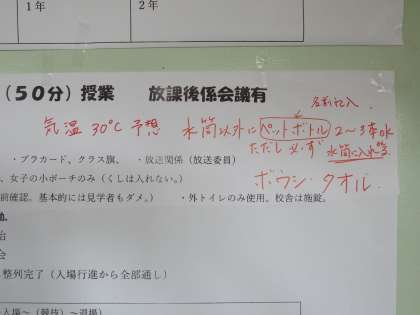 1年
2年
(50分)授業 放課後係会議有
名前記入
気温30℃予想 水筒以外にペットボトル2〜3本OK
ただし必ず水筒に入れる
・プラカード、クラス旗、 ・放送関係(放送委員)
、女子の小ポーチのみ(くしは入れない。)
ボウシ・タオル
前確認、基本的には見学者もダメ。) ・外トイレのみ使用、校舎は施錠。
治
会
整列完了(入場行進から全部通し)
入場〜(競技)〜退場)